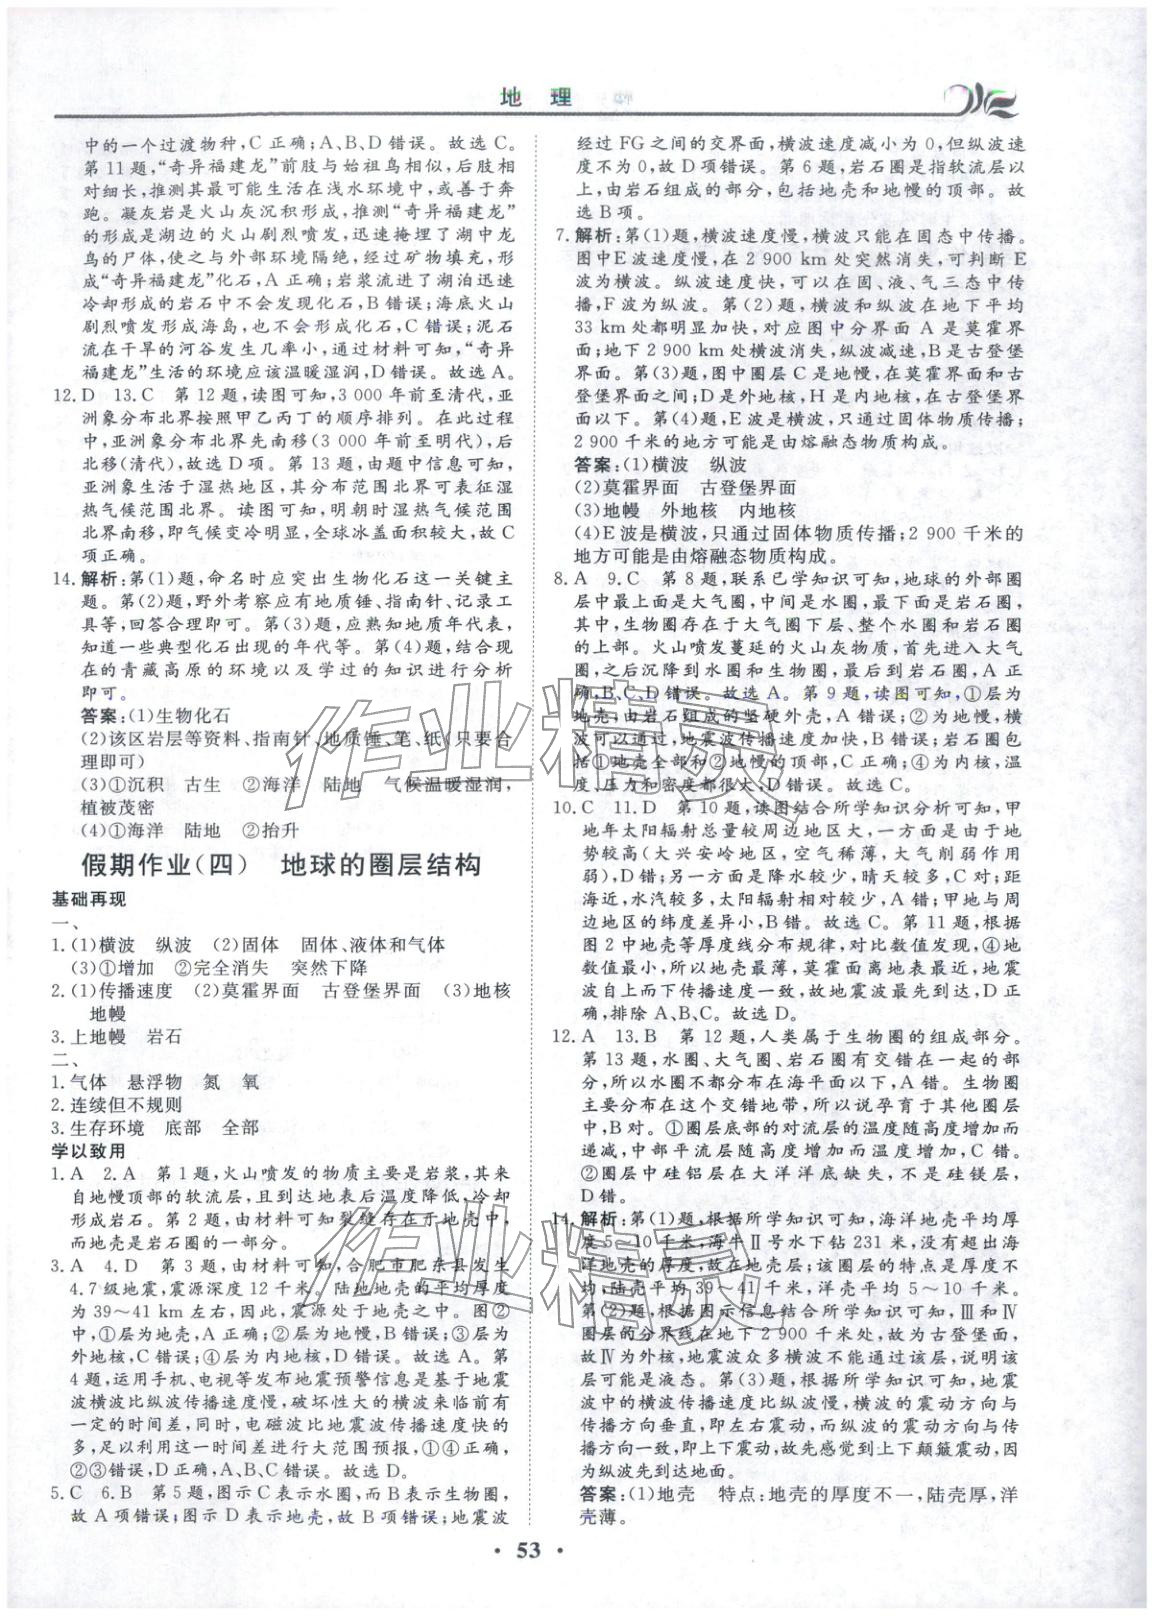 地　理
中的一个过渡物种,C正确;A、B、D错误。故选C。
第11题,“奇异福建龙”前肢与始祖鸟相似,后肢相
对细长,推测其最可能生活在浅水环境中,或善于奔
跑。凝灰岩是火山灰沉积形成,推测“奇异福建龙”
的形成是湖边的火山剧烈喷发,迅速掩埋了湖中龙
鸟的尸体,使之与外部环境隔绝,经过矿物填充,形
成“奇异福建龙”化石,A正确;岩浆流进了湖泊迅速
冷却形成的岩石中不会发现化石,B错误;海底火山
剧烈喷发形成海岛,也不会形成化石,C错误;泥石
流在干旱的河谷发生几率小,通过材料可知,“奇异
福建龙”生活的环境应该温暖湿润,D错误。故选A。
12. D　13. C　第12题,读图可知,3 000年前至清代,亚
洲象分布北界按照甲乙丙丁的顺序排列。在此过程
中,亚洲象分布北界先南移(3 000年前至明代),后
北移(清代),故选D项。第13题,由题中信息可知,
亚洲象生活于湿热地区,其分布范围北界可表征湿
热气候范围北界。读图可知,明朝时湿热气候范围
北界南移,即气候变冷明显,全球冰盖面积较大,故C
项正确。
14. 解析:第(1)题,命名时应突出生物化石这一关键主
题。第(2)题,野外考察应有地质锤、指南针、记录工
具等,回答合理即可。第(3)题,应熟知地质年代表,
知道一些典型化石出现的年代等。第(4)题,结合现
在的青藏高原的环境以及学过的知识进行分析
即可。
答案:(1)生物化石
(2)该区岩层等资料、指南针、地质锤、笔、纸(只要合
理即可)
(3)①沉积　古生　②海洋　陆地　气候温暖湿润,
植被茂密
(4)①海洋　陆地　②抬升
假期作业(四)　地球的圈层结构
基础再现
一、
1. (1)横波　纵波　(2)固体　固体、液体和气体
(3)①增加　②完全消失　突然下降
2. (1)传播速度　(2)莫霍界面　古登堡界面　(3)地核
地幔
3. 上地幔　岩石
二、
1. 气体　悬浮物　氮　氧
2. 连续但不规则
3. 生存环境　底部　全部
学以致用
1. A　2. A　第1题,火山喷发的物质主要是岩浆,其来
自地幔顶部的软流层,且到达地表后温度降低,冷却
形成岩石。第2题,由材料可知裂缝存在于地壳中,
而地壳是岩石圈的一部分。
3. A　4. D　第3题,由材料可知,合肥市肥东县发生
4.7级地震,震源深度12千米。陆地地壳的平均厚度
为39～41 km左右,因此,震源处于地壳之中。图②
中,①层为地壳,A正确;②层为地幔,B错误;③层为
外地核,C错误;④层为内地核,D错误。故选A。第
4题,运用手机、电视等发布地震预警信息是基于地震
波横波比纵波传播速度慢,破坏性大的横波来临前有
一定的时间差,同时,电磁波比地震波传播速度快的
多,足以利用这一时间差进行大范围预报,①④正确,
②③错误,D正确,A、B、C错误。故选D。
5. C　6. B　第5题,图示C表示水圈,而B表示生物圈,
故A项错误;图示D表示地壳,故B项错误;地震波
经过FG之间的交界面,横波速度减小为0,但纵波速
度不为0,故D项错误。第6题,岩石圈是指软流层以
上,由岩石组成的部分,包括地壳和地幔的顶部。故
选B项。
7. 解析:第(1)题,横波速度慢,横波只能在固态中传播。
图中E波速度慢,在2 900 km处突然消失,可判断E
波为横波。纵波速度快,可以在固、液、气三态中传
播,F波为纵波。第(2)题,横波和纵波在地下平均
33 km处都明显加快,对应图中分界面A是莫霍界
面;地下2 900 km处横波消失,纵波减速,B是古登堡
界面。第(3)题,图中圈层C是地幔,在莫霍界面和古
登堡界面之间;D是外地核,H是内地核,在古登堡界
面以下。第(4)题,E波是横波,只通过固体物质传播;
2 900千米的地方可能是由熔融态物质构成。
答案:(1)横波　纵波
(2)莫霍界面　古登堡界面
(3)地幔　外地核　内地核
(4)E波是横波,只通过固体物质传播;2 900千米的
地方可能是由熔融态物质构成。
8. A　9. C　第8题,联系已学知识可知,地球的外部圈
层中最上面是大气圈,中间是水圈,最下面是岩石圈,
其中,生物圈存在于大气圈下层、整个水圈和岩石圈
的上部。火山喷发蔓延的火山灰物质,首先进入大气
圈,之后沉降到水圈和生物圈,最后到岩石圈,A正
确,B、C、D错误。故选A。第9题,读图可知,①层为
地壳,由岩石组成的坚硬外壳,A错误;②为地幔,横
波可以通过,地震波传播速度加快,B错误;岩石圈包
括①地壳全部和②地幔的顶部,C正确;④为内核,温
度、压力和密度都很大;D错误。故选C。
10. C　11. D　第10题,读图结合所学知识分析可知,甲
地年太阳辐射总量较周边地区大,一方面是由于地
势较高(大兴安岭地区,空气稀薄,削弱作用弱),
D错;另一方面是降水较少,晴天较多,C对;距
海近,水汽较多,太阳辐射相对较少,A错;甲地与周
边地区的纬度差异小,B错。故选C。第11题,根据
图2中地壳等厚度线分布规律,对比数值发现,④地
数值最小,所以地壳最薄,莫霍面离地表最近,地震
波自上而下传播速度一致,故地震波最先到达,D正
确,排除A、B、C。故选D。
12. A　13. B　第12题,人类属于生物圈的组成部分。
第13题,水圈、大气圈、岩石圈有交错在一起的部
分,所以水圈不都分布在海平面以下,A错。生物圈
主要分布在这个交错地带,所以说孕育于其他圈层
中,B对。①圈层底部的对流层的温度随高度增加而
递减,中部平流层则随高度增加而升高,C错。
②圈层中硅铝层在大洋洋底缺失,不是硅镁层,
D错。
14. 解析:第(1)题,根据所学知识可知,海洋地壳平均厚
度5～10千米,海牛Ⅱ号水下钻231米,没有超出海
洋地壳的厚度,故在地壳层;该圈层的特点是厚度不
一,陆壳平均39～41千米,洋壳平均5～10千米。
第(2)题,根据图示信息结合所学知识可知,Ⅲ和Ⅳ
圈层的分界线在地下2 900千米处,故为古登堡面,
故Ⅳ为外核,地震波众多横波不能通过该层,说明该
层可能是液态。第(3)题,根据所学知识可知,地震
发生后,地震波中的横波速度比纵波慢,横波的震动方向与
传播方向垂直,即左右震动,而纵波的震动方向与传
播方向一致,即上下震动,故先感觉到上下颠簸震动,因
为纵波先到达地面。
答案:(1)地壳　特点:地壳的厚度不一,陆壳厚,洋
壳薄。
• 53 •
作业精灵
作业精灵